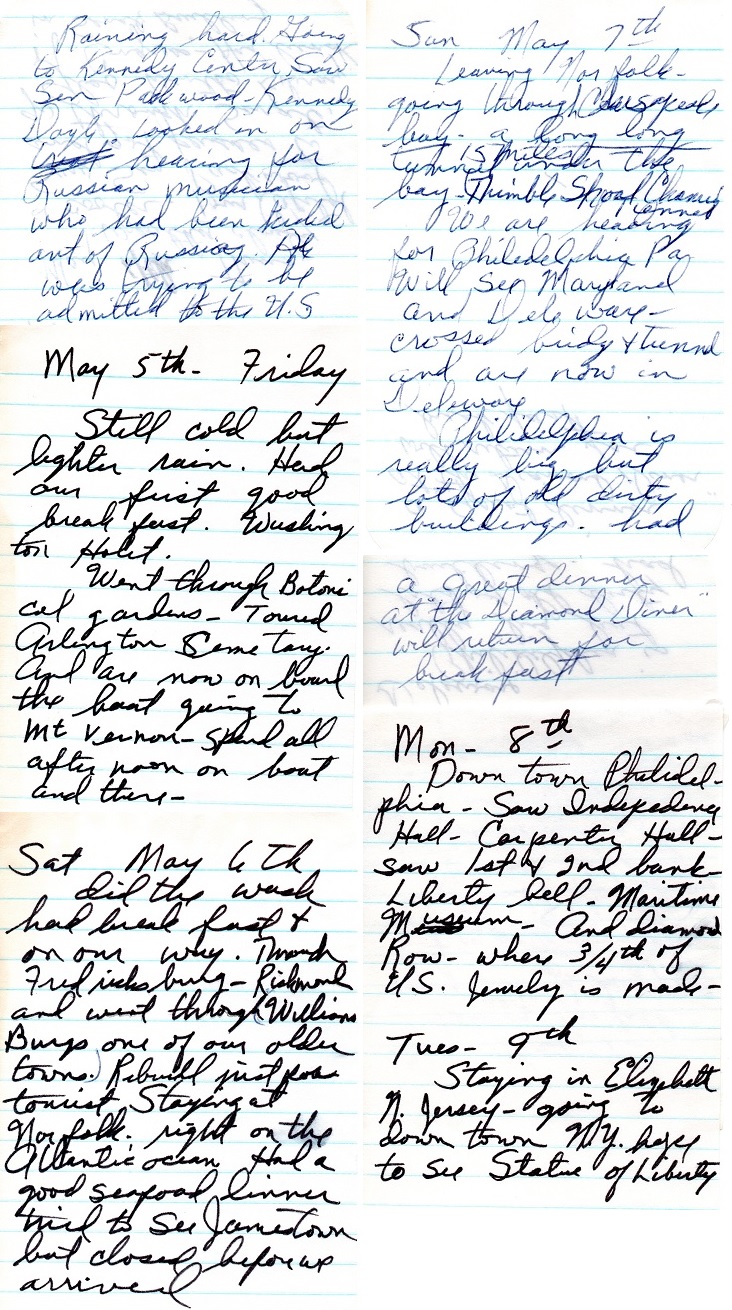 Raining hard. Going
to Kennedy Center, Saw
Sen Packwood - Kennedy
Dayle. Looked in on
hearing for
Russian musician
who had been kicked
out of Russia. He
was trying to be
admitted to the U.S
May 5th - Friday
Still cold but
lighter rain. Had
our first good
break fast. Washing
ton Hotel.
Went through Botoni
cal gardens - Toured
Arlington Semetary.
And are now on board
the boat going to
Mt Vernon - Spend all
after noon on boat
and there -
Sat May 6th
did the wash
had break fast &
on our way. Through
Fredricksburg - Richmond
and went through (Williams
Burg one of our older
towns.) Rebuilt just for
tourist Staying at
Norfolk. right on the
Atlantic ocean Had a
good seafood dinner
tried to see Jamestown
but closed before we
arrived
Sun May 7th
Leaving Norfolk -
going through Chesapeake
bay - a long long
15 miles
tunnel under the
bay - Thimble Shoal Channel
tunnel
We are heading
for Philidelphia Pa
Will see Maryland
and Deleware -
crossed bridg & tunnel
and are now in
Deleware
Philidelphia is
really big but
lots of old dirty
buildings. had
a great dinner
at "the Diamond Diner"
will return for
breakfast
Mon - 8th
Down town Philidel-
phia - Saw Indepedence
Hall - Carpenters Hall -
saw 1st & 2nd bank -
Liberty bell - Maritime
Museum - And diamond
Row - where 3/4th of
U.S. Jewelry is made -
Tues - 9th
Staying in Elizabeth
N. Jersey - going to
down town N.Y. hope
to see Statue of Liberty